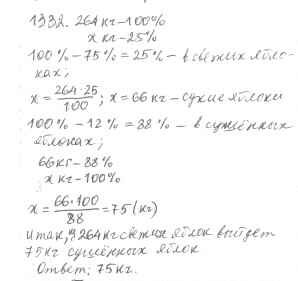 1332. 264 кг – 100%
x кг – 25%
100% – 75% = 25% – в свежих ябло-
ках;
x = 264·25/100; x = 66 кг – сухие яблоки
100% – 12% = 88% – в сушённых
яблоках;
66 кг – 88%
x кг – 100%
x = 66·100/88 = 75 (кг)
итак, 264 кг свежих яблок выйдет
75 кг сушённых яблок
Ответ; 75 кг.